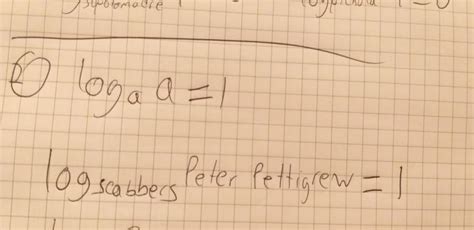 ② logₐ a = 1
log scabbers Peter Pettigrew = 1